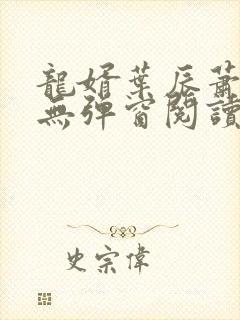 龍婿葉辰蕭
無彈窗閱讀
史宗偉